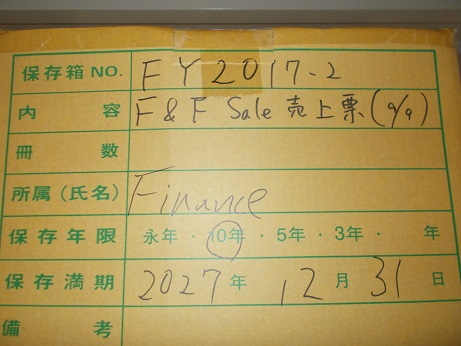 保存箱NO. FY2017-2
内容 F&F Sale 売上票(9/9)
冊数
所属(氏名) Finance
保存年限 永年・10年・5年・3年・ 年
保存満期 2027年 12月 31日
備考